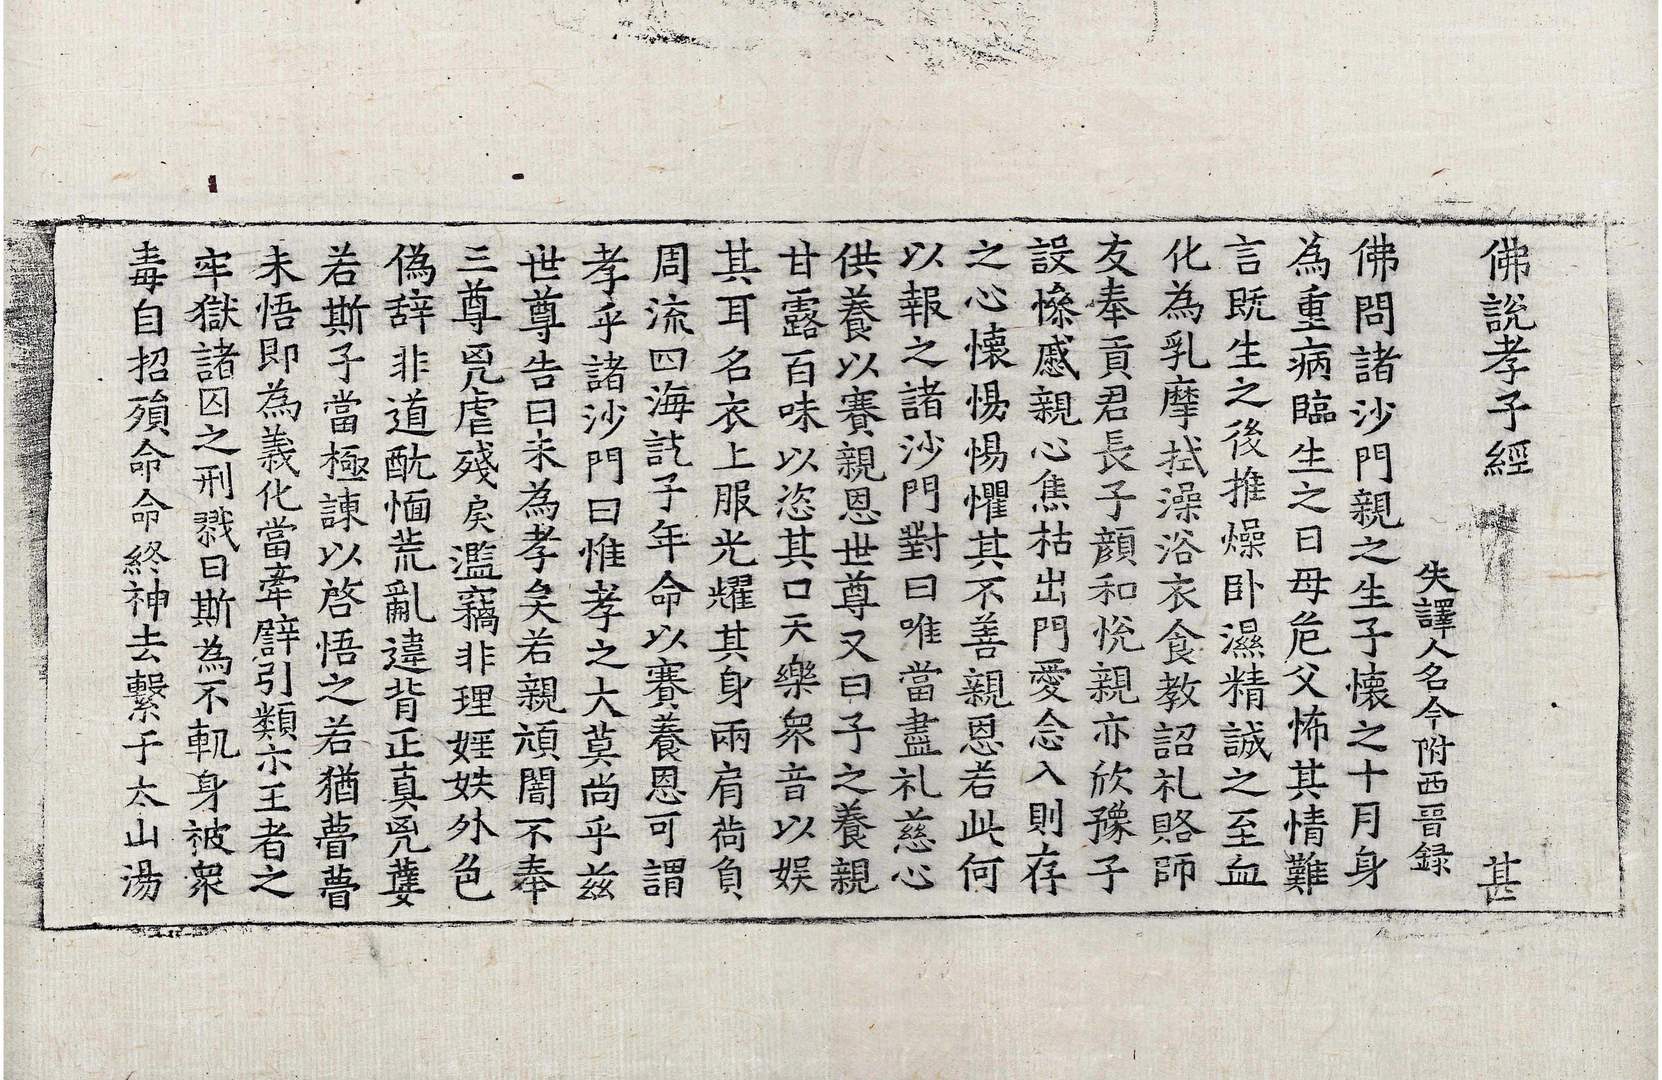 佛說孝子經 甚
失譯人名今附西晉録
佛問諸沙門親之生子懷之十月身
為重病臨生之日母危父怖其情難
言既生之後推燥卧濕精誠之至血
化為乳摩拭澡浴衣食教詔礼賂師
友奉貢君長子顔和悅親亦欣豫子
設慘慼親心焦枯出門愛念入則存
之心懷惕惕懼其不善親恩若此何
以報之諸沙門對曰唯當盡礼慈心
供養以賽親恩世尊又曰子之養親
甘露百味以恣其口天樂衆音以娱
其耳名衣上服光耀其身兩肩荷負
周流四海訖子年命以賽養恩可謂
孝乎諸沙門曰惟孝之大莫尚乎兹
世尊告曰未為孝矣若親頑闇不奉
三尊兇虐殘戾濫竊非理婬妷外色
偽辞非道酖愐荒亂違背正真兇孽
若斯子當極諫以啓悟之若猶瞢瞢
未悟即為義化當牽譬引類示王者之
牢獄諸囚之刑戮曰斯為不軌身被衆
毒自招殞命命終神去繫于太山湯